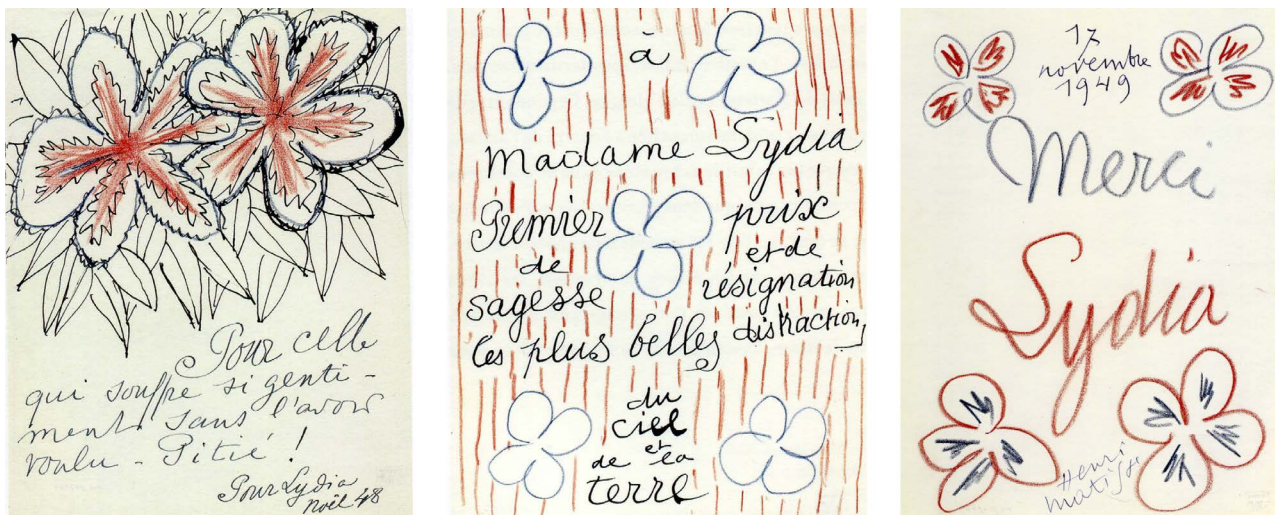 Pour celle
qui souffre si genti-
ment sans l'avoir
voulu - Pitié !
Pour Lydia
noël 48
à
Madame Lydia
Premier prix
de et de
sagesse résignation
les plus belles distraction,
du
ciel
et
de la
terre
17
novembre
1949
Merci
Lydia
Henri
Matisse